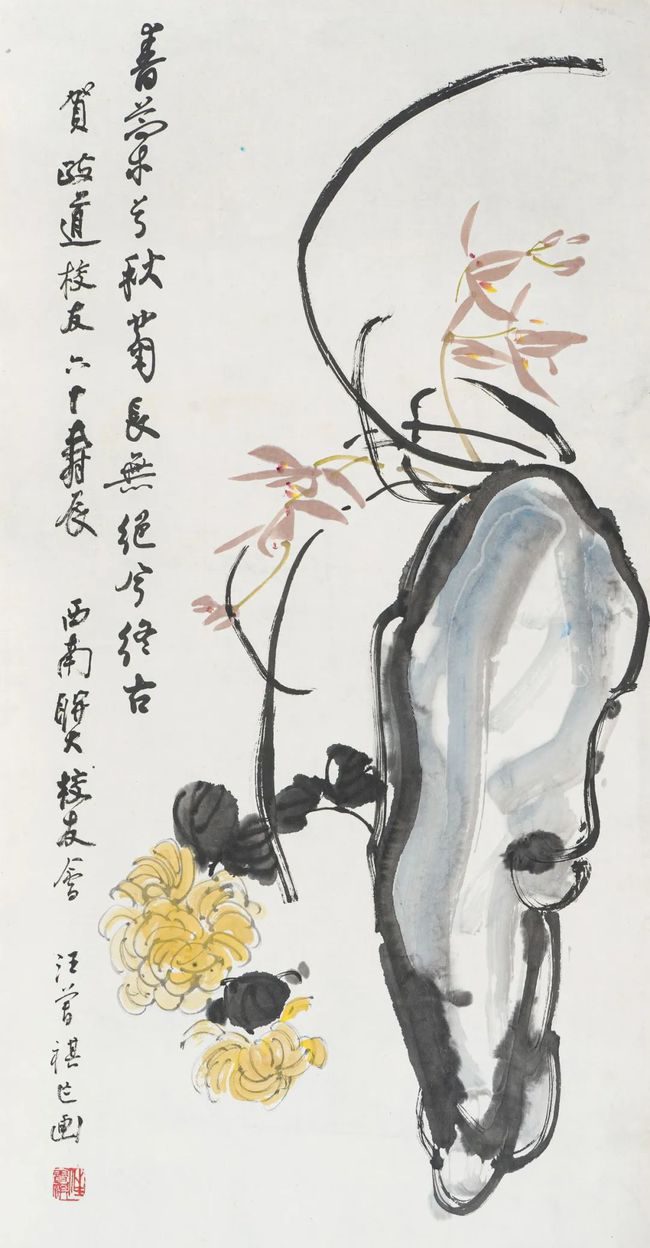 春蘭兮秋菊長無絕兮終古
賀政道校友六十壽辰 西南聯大校友會 汪曾祺作画